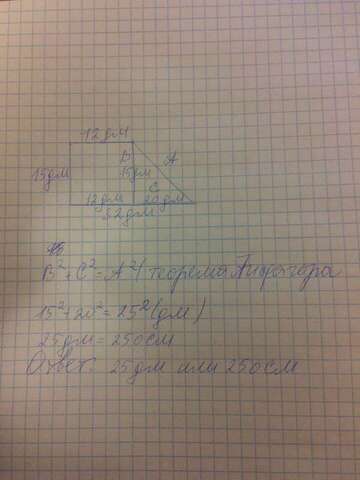 12 дм
B A
15дм 15дм
C
12дм 20 дм
32дм
B²+C²=A²/ теорема Пифагора
15²+20²=25²(дм)
25дм=250см
Ответ: 25дм или 250см